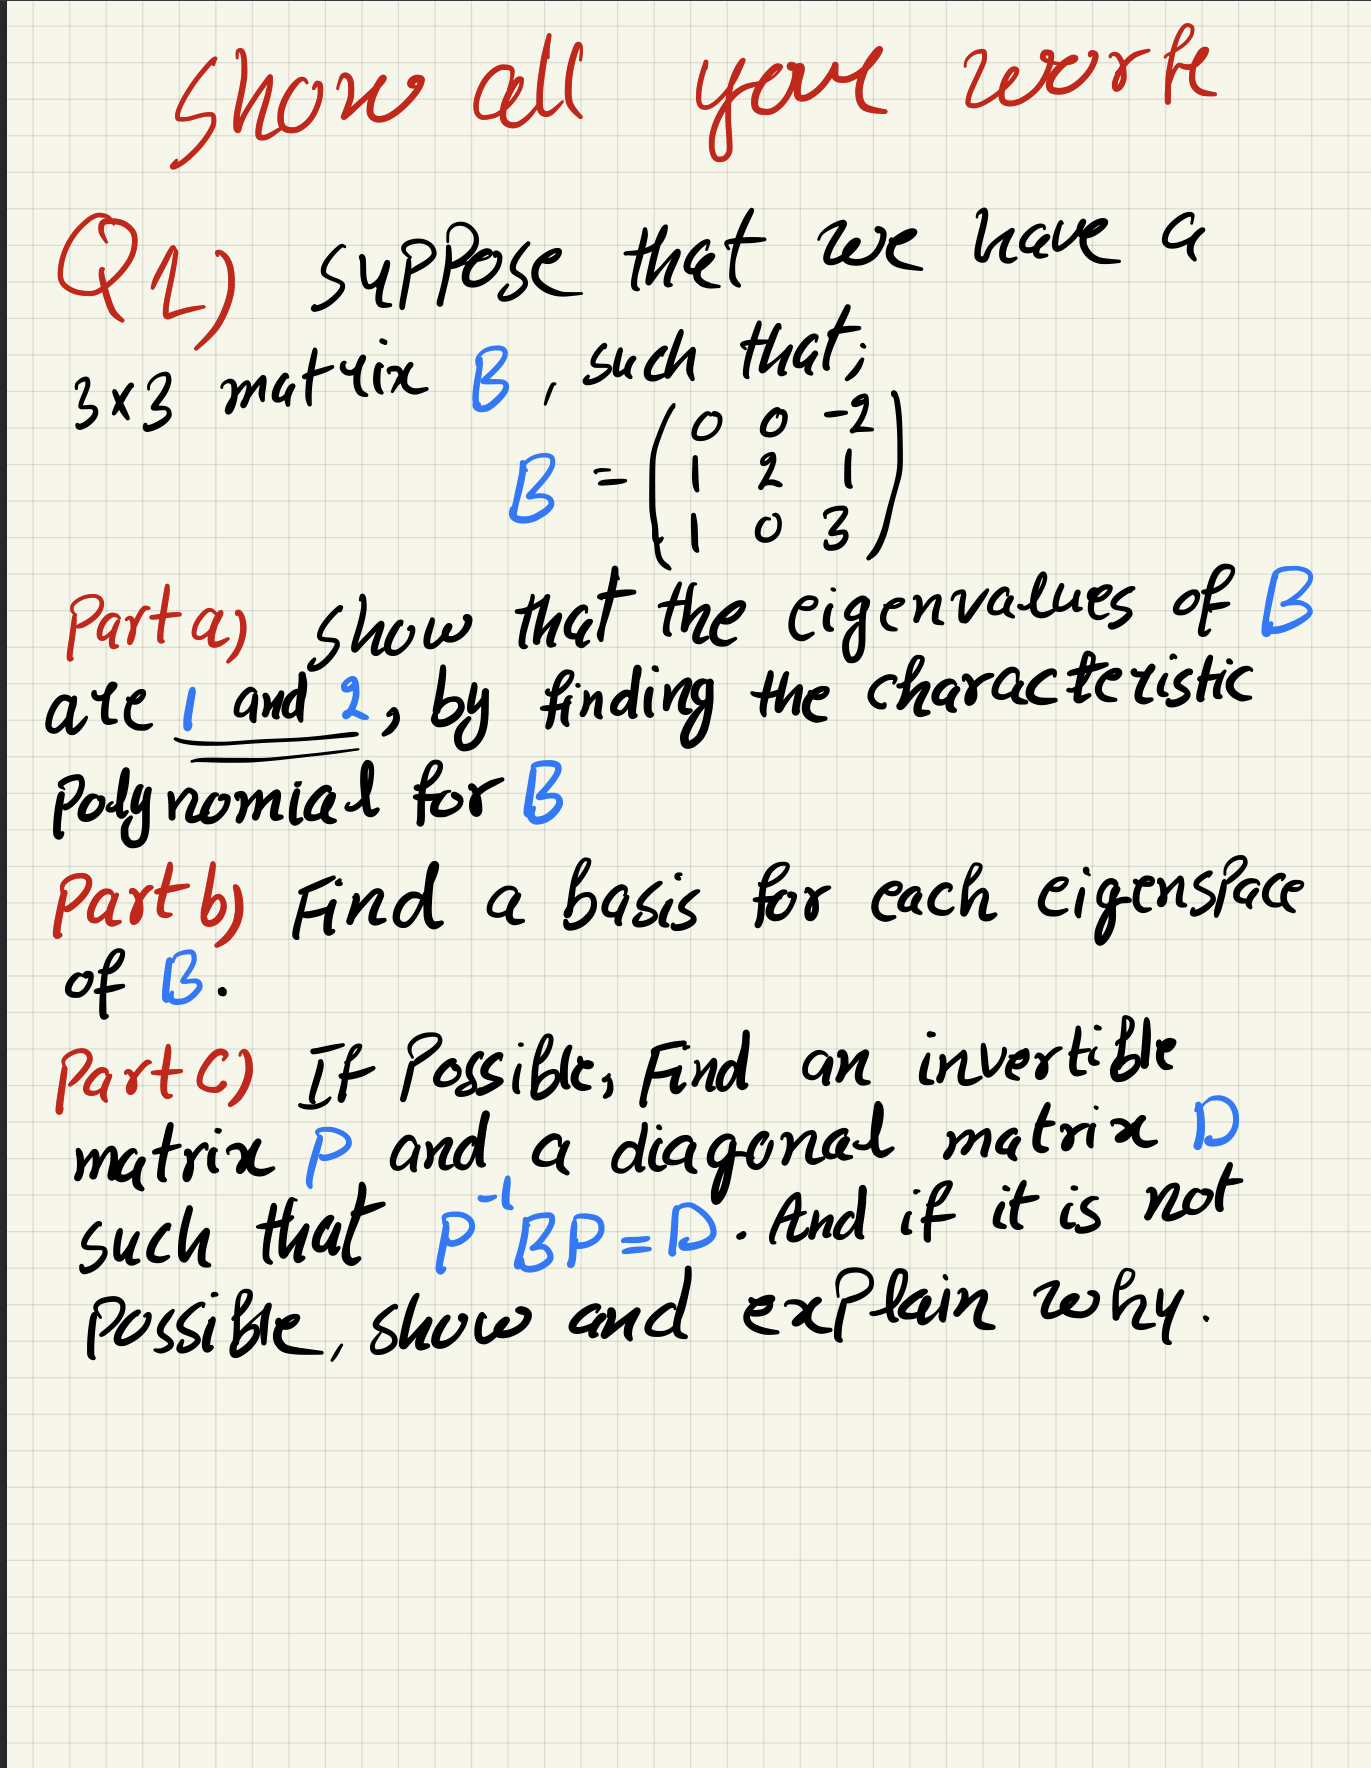 Show all your work
Q1) Suppose that we have a
3×3 matrix B, such that;
B = ( 0 0 -2
1 2 1
1 0 3 )
Part a) Show that the eigenvalues of B
are 1 and 2, by finding the characteristic
Polynomial for B
Part b) Find a basis for each eigenspace
of B.
Part c) If Possible, Find an invertible
matrix P and a diagonal matrix D
such that P⁻¹BP=D. And if it is not
Possible, show and explain why.